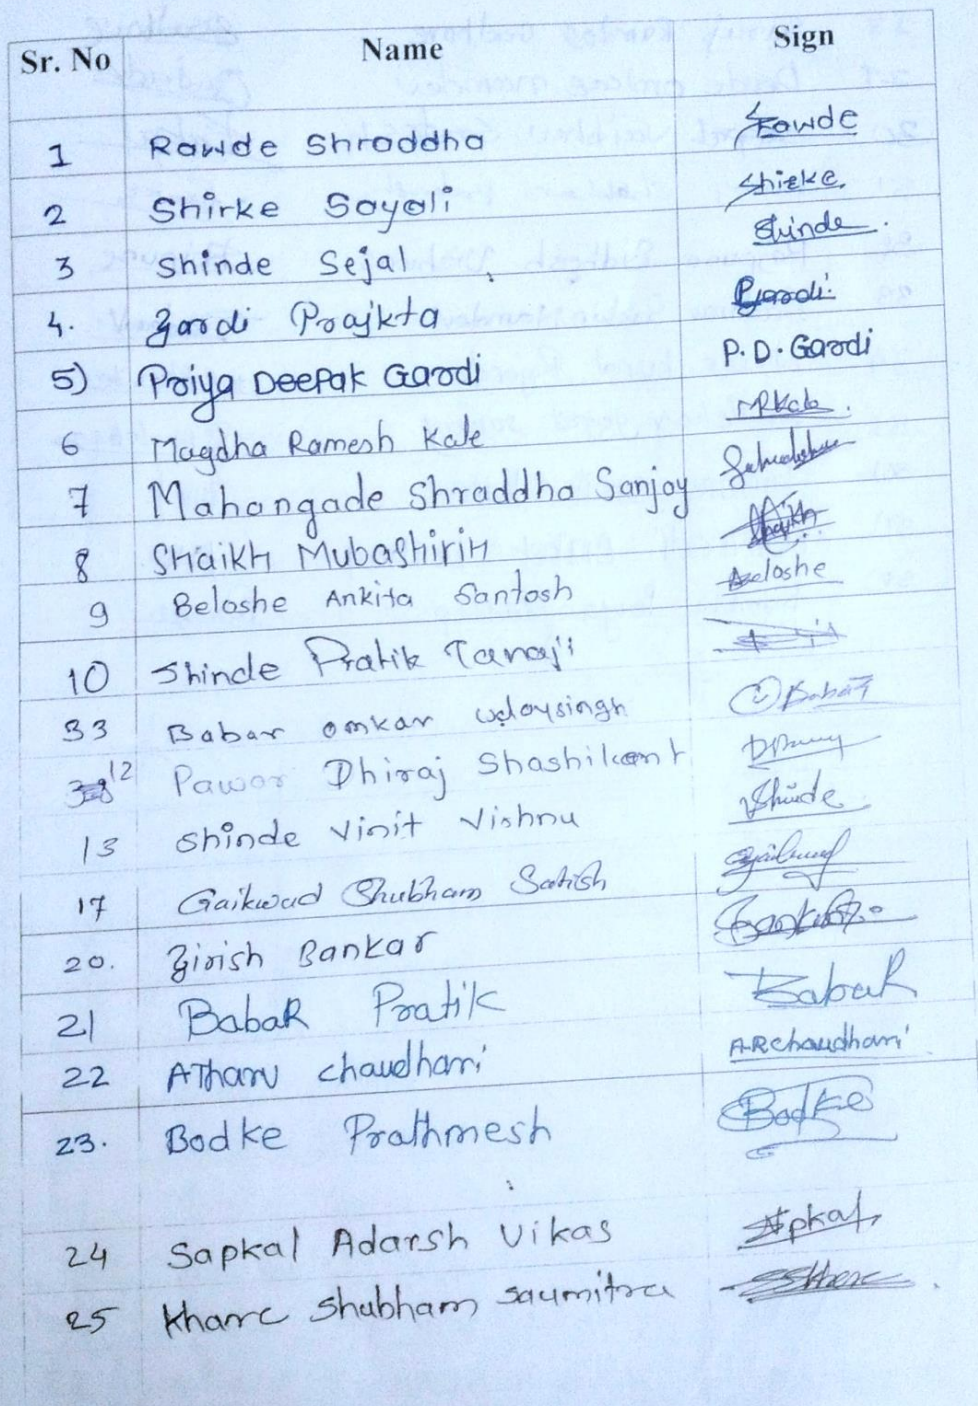 Sr. No Name Sign
1 Rawde Shraddha Rawde
2 Shirke Sayali Shirke
3 Shinde Sejal Shinde
4. Gardi Prajkta Gardi
5) Priya Deepak Gardi P.D. Gardi
6 Magdha Ramesh Kale MRKale
7 Mahangade Shraddha Sanjay
8 Shaikh Mubashirin Shaikh
9 Beloshe Ankita Santosh Beloshe
10 Shinde Pratik Tanaji
33 Babar omkar udaysingh Babar
12 Pawar Dhiraj Shashikant
13 Shinde Vinit Vishnu Shinde
17 Gaikwad Shubham Satish
20. Girish Bankar
21 BabaR Pratik BabaR
22 Atharv chaudhari A.R chaudhari
23. Bodke Prathmesh Bodke
24 Sapkal Adarsh Vikas
25 Khare Shubham Saumitra